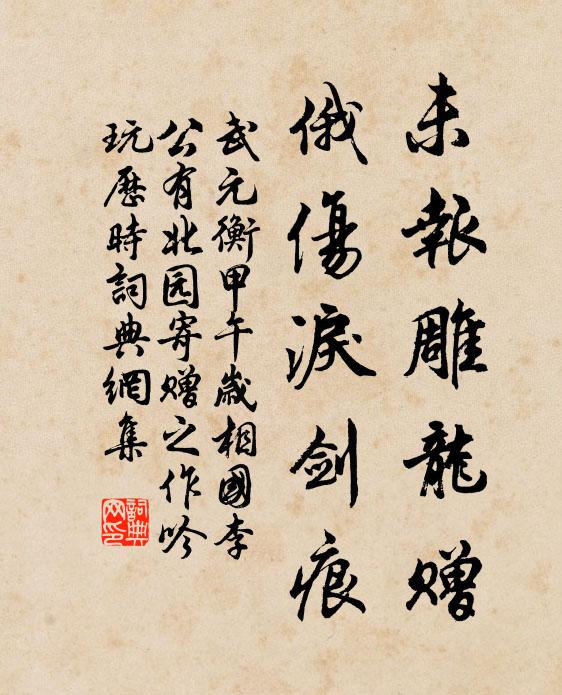 未報雕龍贈
俄傷淚劍痕
武元衡甲午歲相國李
公有北园寄赠之作吟
玩歷時詞典網集
詞典
网印